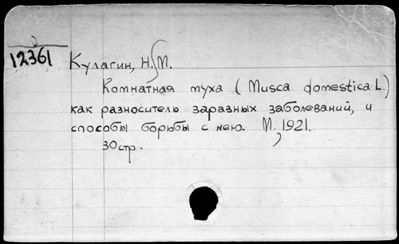 12361
Кулагин, Н. М.
Комнатная муха (Musca domestica L.)
как разноситель заразных заболеваний, и
способы борьбы с нею. М., 1921.
30 стр.